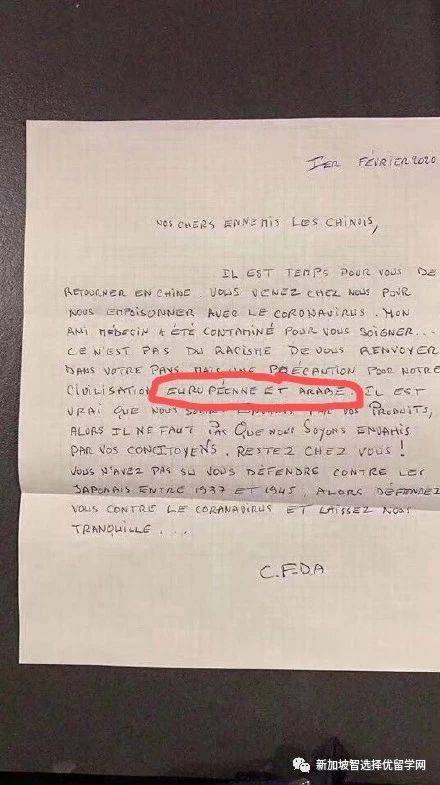 1er FÉVRIER 2020
NOS CHERS ENNEMIS LES CHINOIS,
IL EST TEMPS POUR VOUS DE
RETOURNER EN CHINE. VOUS VENEZ CHEZ NOUS POUR
NOUS EMPOISONNER AVEC LE CORONAVIRUS. MON
AMI MÉDECIN A ÉTÉ CONTAMINÉ POUR VOUS SOIGNER...
CE N'EST PAS DU RACISME DE VOUS RENVOYER
DANS VOTRE PAYS MAIS UNE PRÉCAUTION POUR NOTRE
CIVILISATION EUROPÉENNE ET ARABE. IL EST
VRAI QUE NOUS SOMMES ENVAHIS PAR VOS PRODUITS,
ALORS IL NE FAUT PAS QUE NOUS SOYONS ENVAHIS
PAR VOS CONCITOYENS. RESTEZ CHEZ VOUS!
VOUS N'AVEZ PAS SU VOUS DÉFENDRE CONTRE LES
JAPONAIS ENTRE 1937 ET 1945, ALORS DÉFENDEZ
VOUS CONTRE LE CORANAVIRUS ET LAISSEZ NOUS
TRANQUILLE....
C.F.D.A
新加坡智选择优留学网